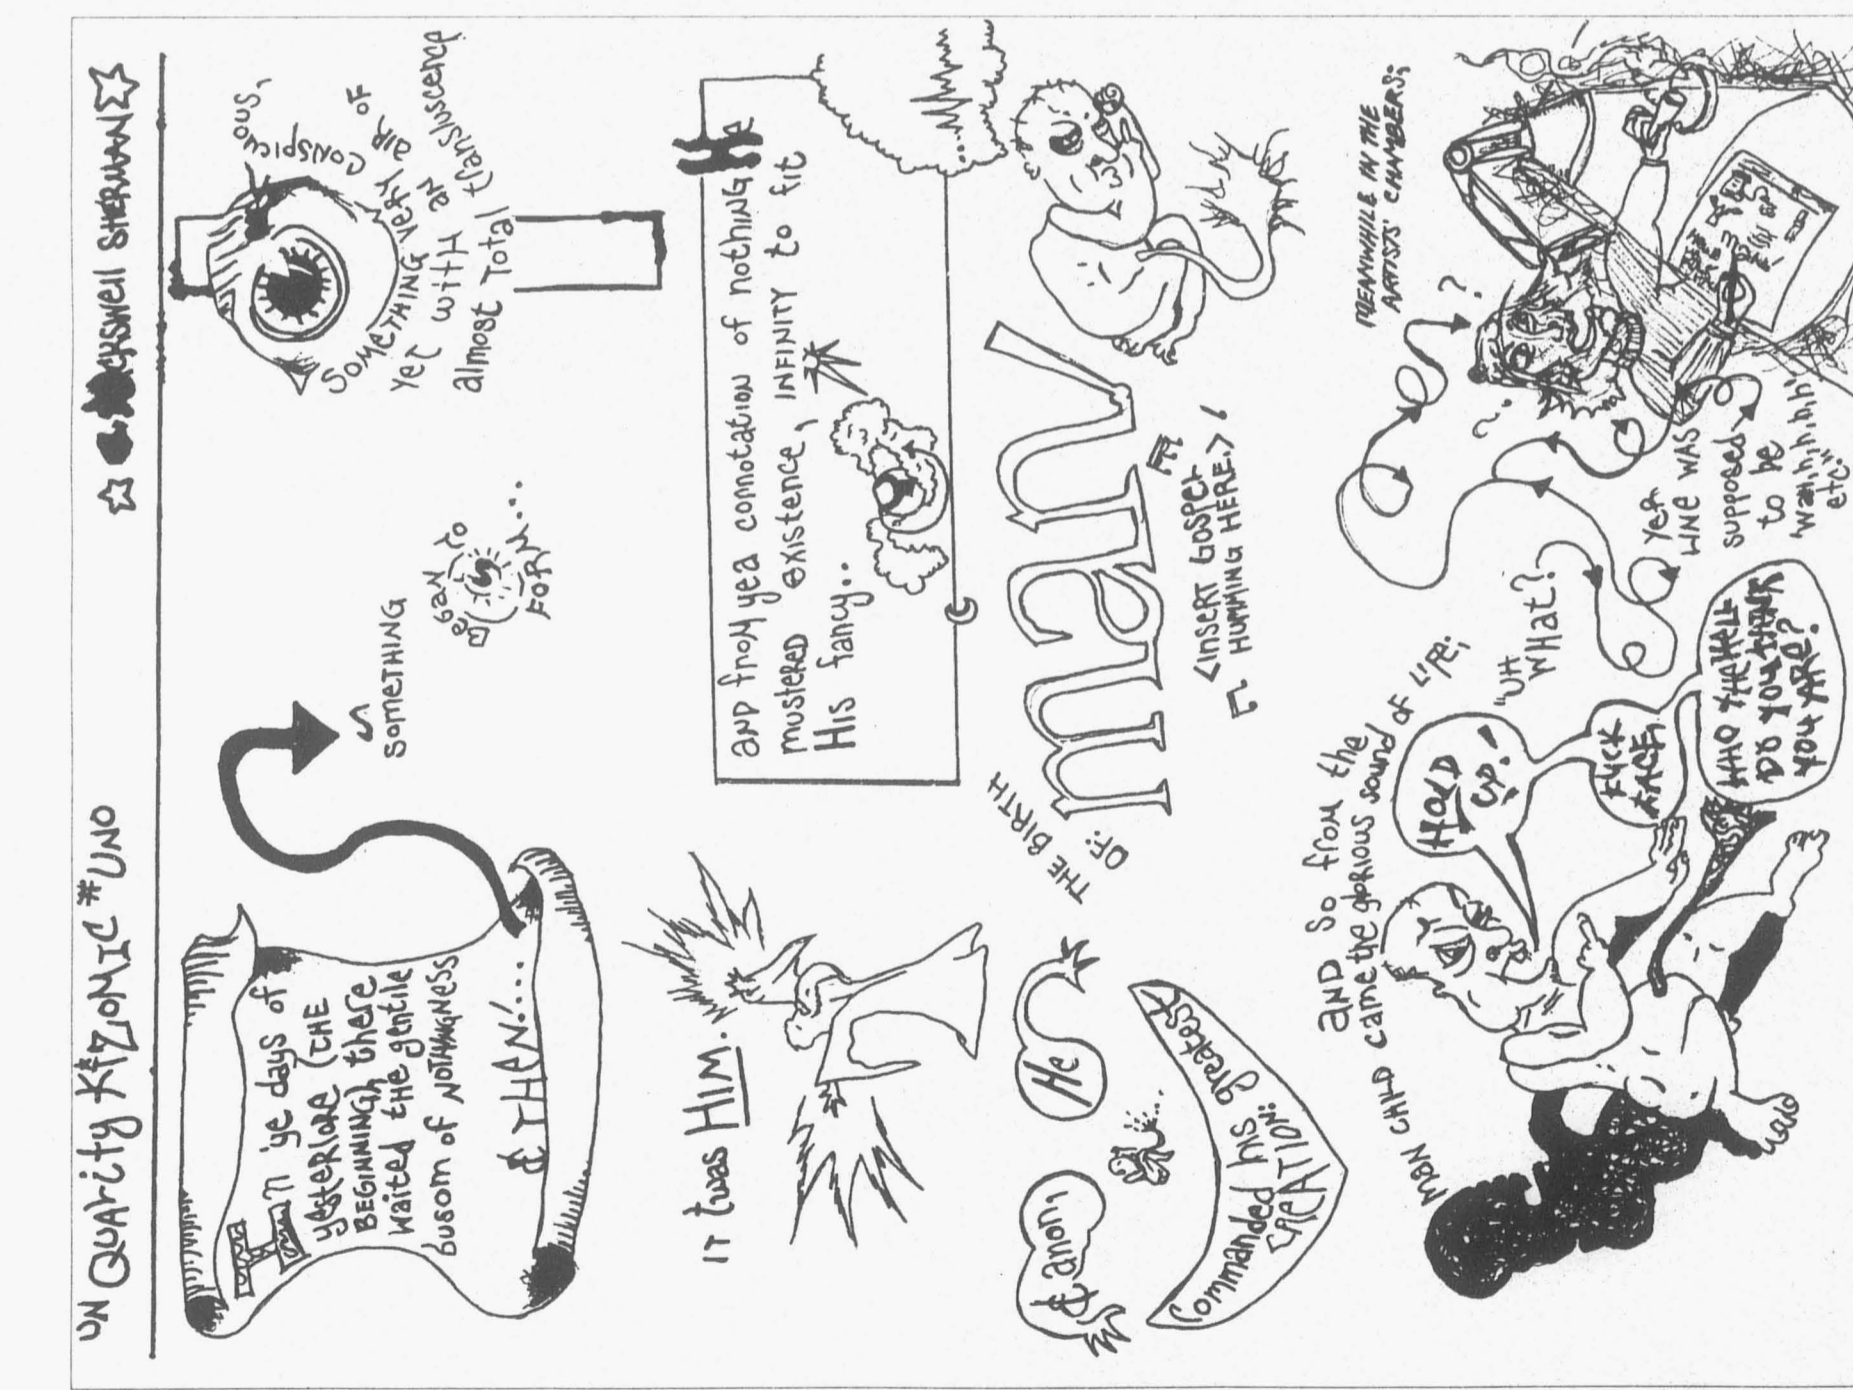 UN QUALITY K*ZOMIC #UNO
SHERMAN
IN 'ye days of
yesterlore (THE
BEGINNING), there
waited THE gentile
busom of NOTHINGNESS
& THEN!...
SOMETHING
BEGAN TO
FORM...
SOMETHING VERY CONSPICUOUS,
YET WITH AN AIR OF
almost Total translucence
IT twas HIM.
He
AND FROM yea connotation of nothing
mustered existence, INFINITY to fit
HIS fancy..
& anon,
He
Commanded his greatest
CREATION:
THE BIRTH
OF:
man!
<INSERT GOSPEL
HUMMING HERE.>
AND SO from the
MAN CHILD came the glorious sound of LIFE;
HOLD
UP!
FUCK
FACE,
WHO THE HELL
DO YOU THINK
YOU ARE?
MEANWHILE IN THE
ARTISTS' CHAMBERS;
?
"UH
WHAT?
YER
LINE WAS
supposed
to be
'wah,h,h,h,h'
etc."